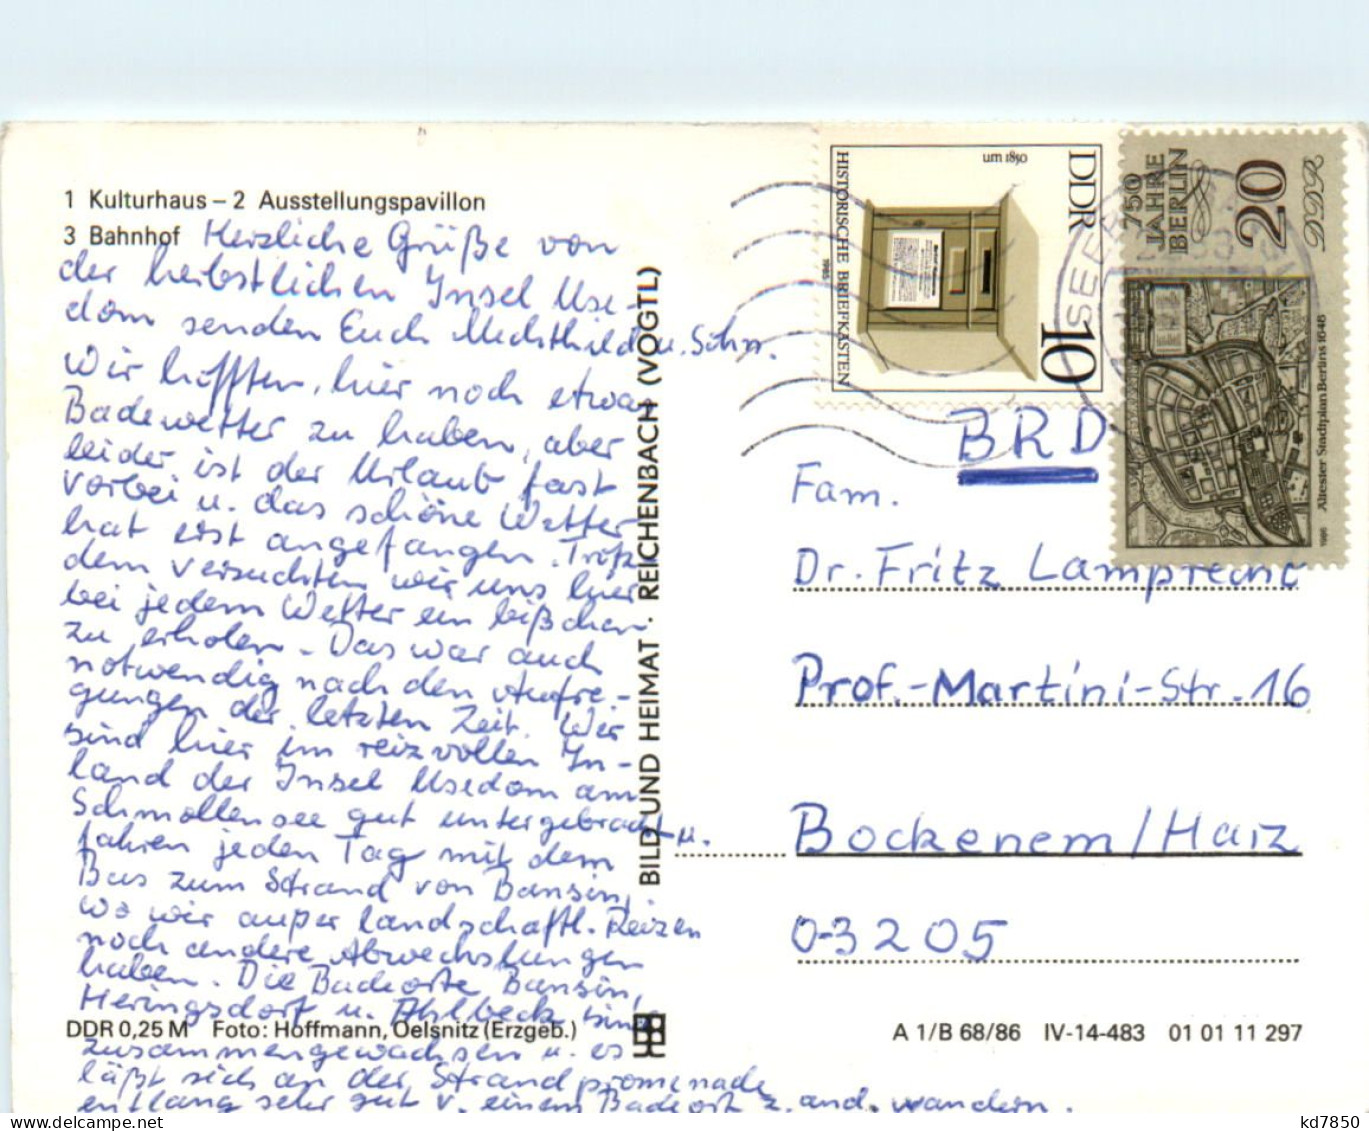 1 Kulturhaus – 2 Ausstellungspavillon
3 Bahnhof
Herzliche Grüße von
der herbstlichen Insel Use-
dom senden Euch Mechthild u. Sohn.
Wir hofften, hier noch etwas
Badewetter zu haben, aber
leider ist der Urlaub fast
vorbei u. das schöne Wetter
hat erst angefangen. Trotz
dem versuchten wir uns hier
bei jedem Wetter ein bißchen
zu erholen. Das war auch
notwendig nach den Aufre-
gungen der letzten Zeit. Wir
sind hier im reizvollen In-
land der Insel Usedom am
Schmollensee gut untergebracht u.
fahren jeden Tag mit dem
Bus zum Strand von Bansin,
wo wir außer landschaftl. Reizen
noch andere Abwechslungen
haben. Die Badeorte Bansin,
Heringsdorf u. Ahlbeck sind
zusammengewachsen u. es
läßt sich an der Strandpromenade
entlang sehr gut v. einem Badeort z. and. wandern.
DDR 0,25 M Foto: Hoffmann, Oelsnitz (Erzgeb.)
BILD UND HEIMAT · REICHENBACH (VOGTL)
DDR
um 1850
HISTORISCHE BRIEFKASTEN
1985
10
750
JAHRE
BERLIN
20
DDR
Ältester Stadtplan Berlins 1648
1986
SEEB
BRD
Fam.
Dr. Fritz Lamprecht
Prof.-Martini-Str. 16
Bockenem/Harz
0-3205
A 1/B 68/86 IV-14-483 01 01 11 297
kd7850